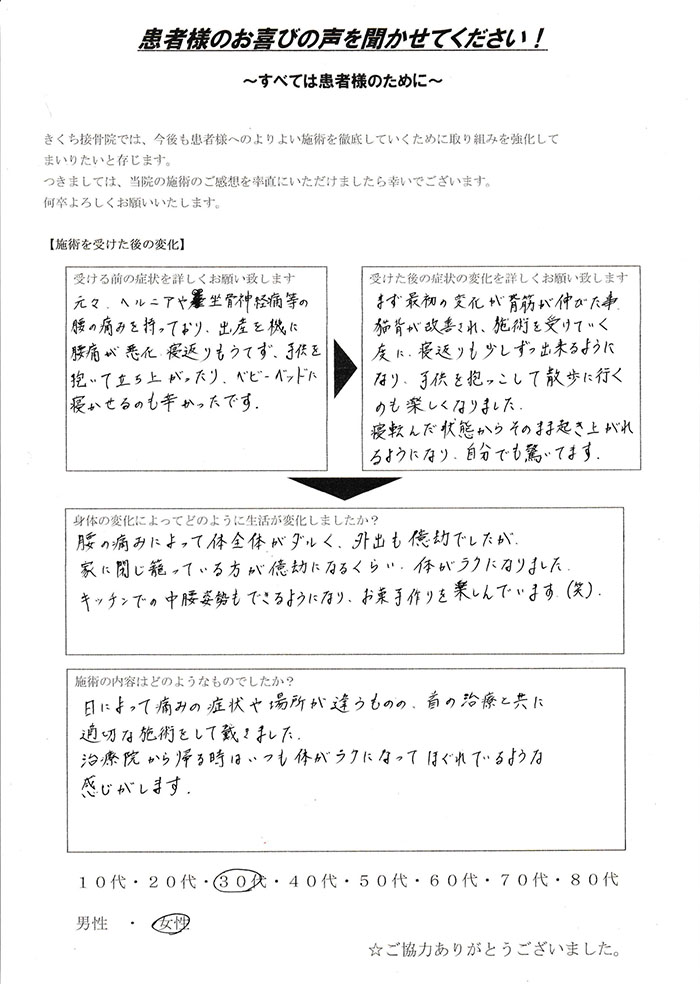 患者様のお喜びの声を聞かせてください！
～すべては患者様のために～
きくち接骨院では、今後も患者様へのよりよい施術を徹底していくために取り組みを強化して
まいりたいと存じます。
つきましては、当院の施術のご感想を率直にいただけましたら幸いでございます。
何卒よろしくお願いいたします。
【施術を受けた後の変化】
受ける前の症状を詳しくお願い致します
元々、ヘルニアや坐骨神経痛等の
腰の痛みを持っており、出産を機に
腰痛が悪化、寝返りもうてず、子供を
抱いて立ち上がったり、ベビーベッドに
寝かせるのも辛かったです．
受けた後の症状の変化を詳しくお願い致します
まず最初の変化が背筋が伸びた事．
猫背が改善され、施術を受けていく
度に、寝返りも少しずつ出来るように
なり、子供を抱っこして散歩に行く
のも楽しくなりました．
寝転んだ状態からそのまま起き上がれ
るようになり、自分でも驚いてます．
身体の変化によってどのように生活が変化しましたか？
腰の痛みによって体全体がダルく、外出も億劫でしたが、
家に閉じ籠っている方が億劫になるくらい、体がラクになりました．
キッチンでの中腰姿勢もできるようになり、お菓子作りを楽しんでいます（笑）．
施術の内容はどのようなものでしたか？
日によって痛みの症状や場所が違うものの、首の治療と共に
適切な施術をして戴きました．
治療院から帰る時はいつも体がラクになって ほぐれているような
感じがします．
１０代・２０代・３０代・４０代・５０代・６０代・７０代・８０代
男性　・　女性
☆ご協力ありがとうございました。